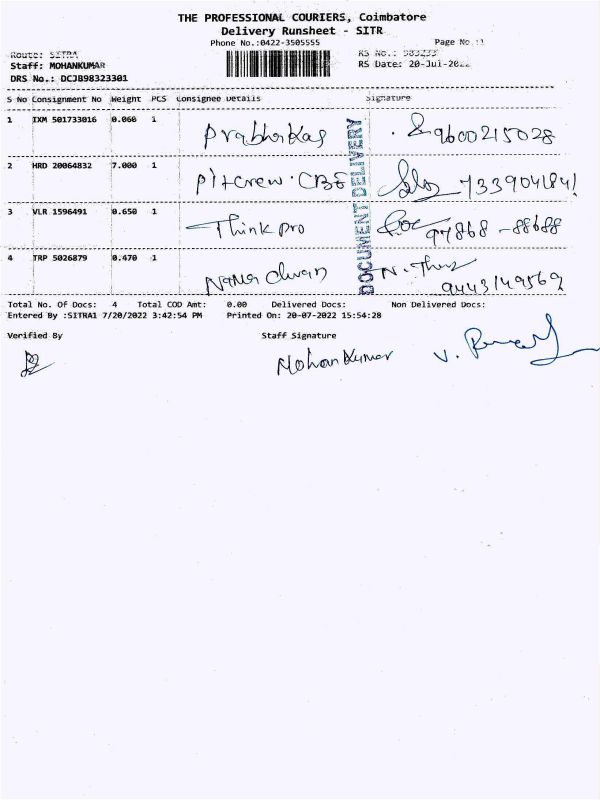 THE PROFESSIONAL COURIERS, Coimbatore
Delivery Runsheet - SITR
Phone No.:0422-3505555
Page No.:1
Route: SITRA
RS No.: 983233
Staff: MOHANKUMAR
RS Date: 20-Jul-2022
DRS No.: DCJB98323301
S No Consignment No Weight PCS Consignee Details Signature
1 IXM 501733016 0.060 1 Prabhakar 9600215028
2 HRD 20064832 7.000 1 Pitcrew. CBE 7339041841
3 VLR 1596491 0.650 1 Think pro 97868-88688
4 TRP 5026879 0.470 1 9443149569
DOCUMENT DELIVERY
Total No. Of Docs: 4 Total COD Amt: 0.00 Delivered Docs: Non Delivered Docs:
Entered By :SITRA1 7/20/2022 3:42:54 PM Printed On: 20-07-2022 15:54:28
Verified By Staff Signature
Mohankumar